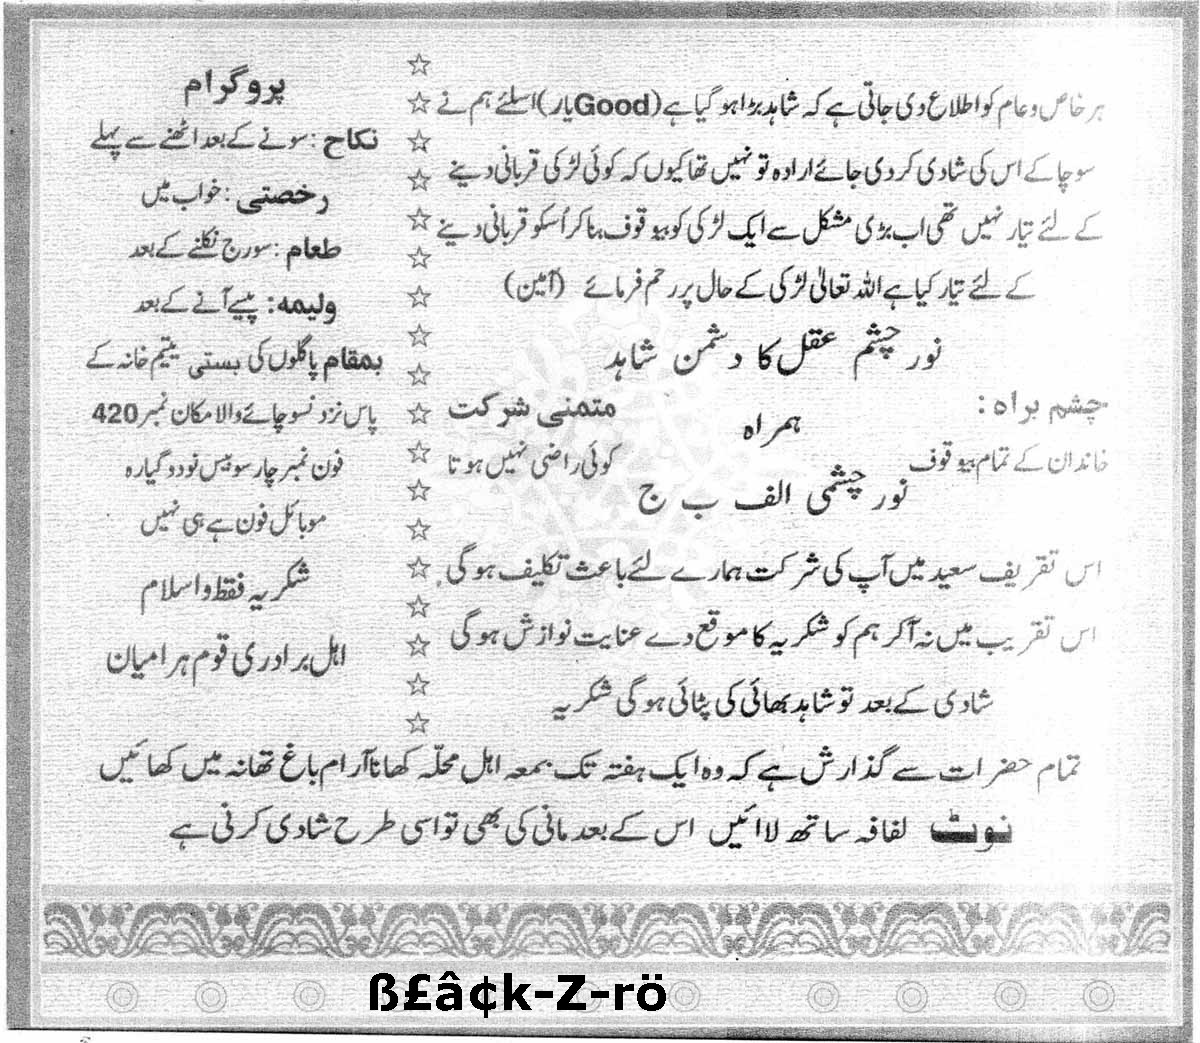 ہر خاص و عام کو اطلاع دی جاتی ہے کہ شاہد بڑا ہو گیا ہے (Good یار) اسلئے ہم نے
سوچا کے اس کی شادی کر دی جائے ارادہ تو نہیں تھا کیوں کہ کوئی لڑکی قربانی دینے
کے لئے تیار نہیں تھی اب بڑی مشکل سے ایک لڑکی کو بیوقوف بنا کر اُسکو قربانی دینے
کے لئے تیار کیا ہے اللہ تعالیٰ لڑکی کے حال پر رحم فرمائے (آمین)
نور چشم عقل کا دشمن شاہد
چشم براہ :
خاندان کے تمام بیوقوف
ہمراہ
متمنی شرکت
کوئی راضی نہیں ہوتا
نور چشمی الف ب ج
اس تقریف سعید میں آپ کی شرکت ہمارے لئے باعث تکلیف ہوگی
اس تقریب میں نہ آکر ہم کو شکریہ کا موقع دے عنایت نوازش ہوگی
شادی کے بعد تو شاہد بھائی کی پٹائی ہوگی شکریہ
پروگرام
نکاح : سونے کے بعد اٹھنے سے پہلے
رخصتی : خواب میں
طعام : سورج نکلنے کے بعد
ولیمہ : پیسے آنے کے بعد
بمقام پاگلوں کی بستی یتیم خانہ کے
پاس نزد نسو چائے والا مکان نمبر 420
فون نمبر چار سو بیس نو دو گیارہ
موبائل فون ہے ہی نہیں
شکریہ فقط واسلام
اہل برادری قوم ہرامیان
تمام حضرات سے گذارش ہے کہ وہ ایک ہفتہ تک بمعہ اہل محلّہ کھانا آرام باغ تھانہ میں کھائیں
نوٹ لفافہ ساتھ لاائیں اس کے بعد مانی کی بھی تو اسی طرح شادی کرنی ہے
ß£â¢k-Z-rö